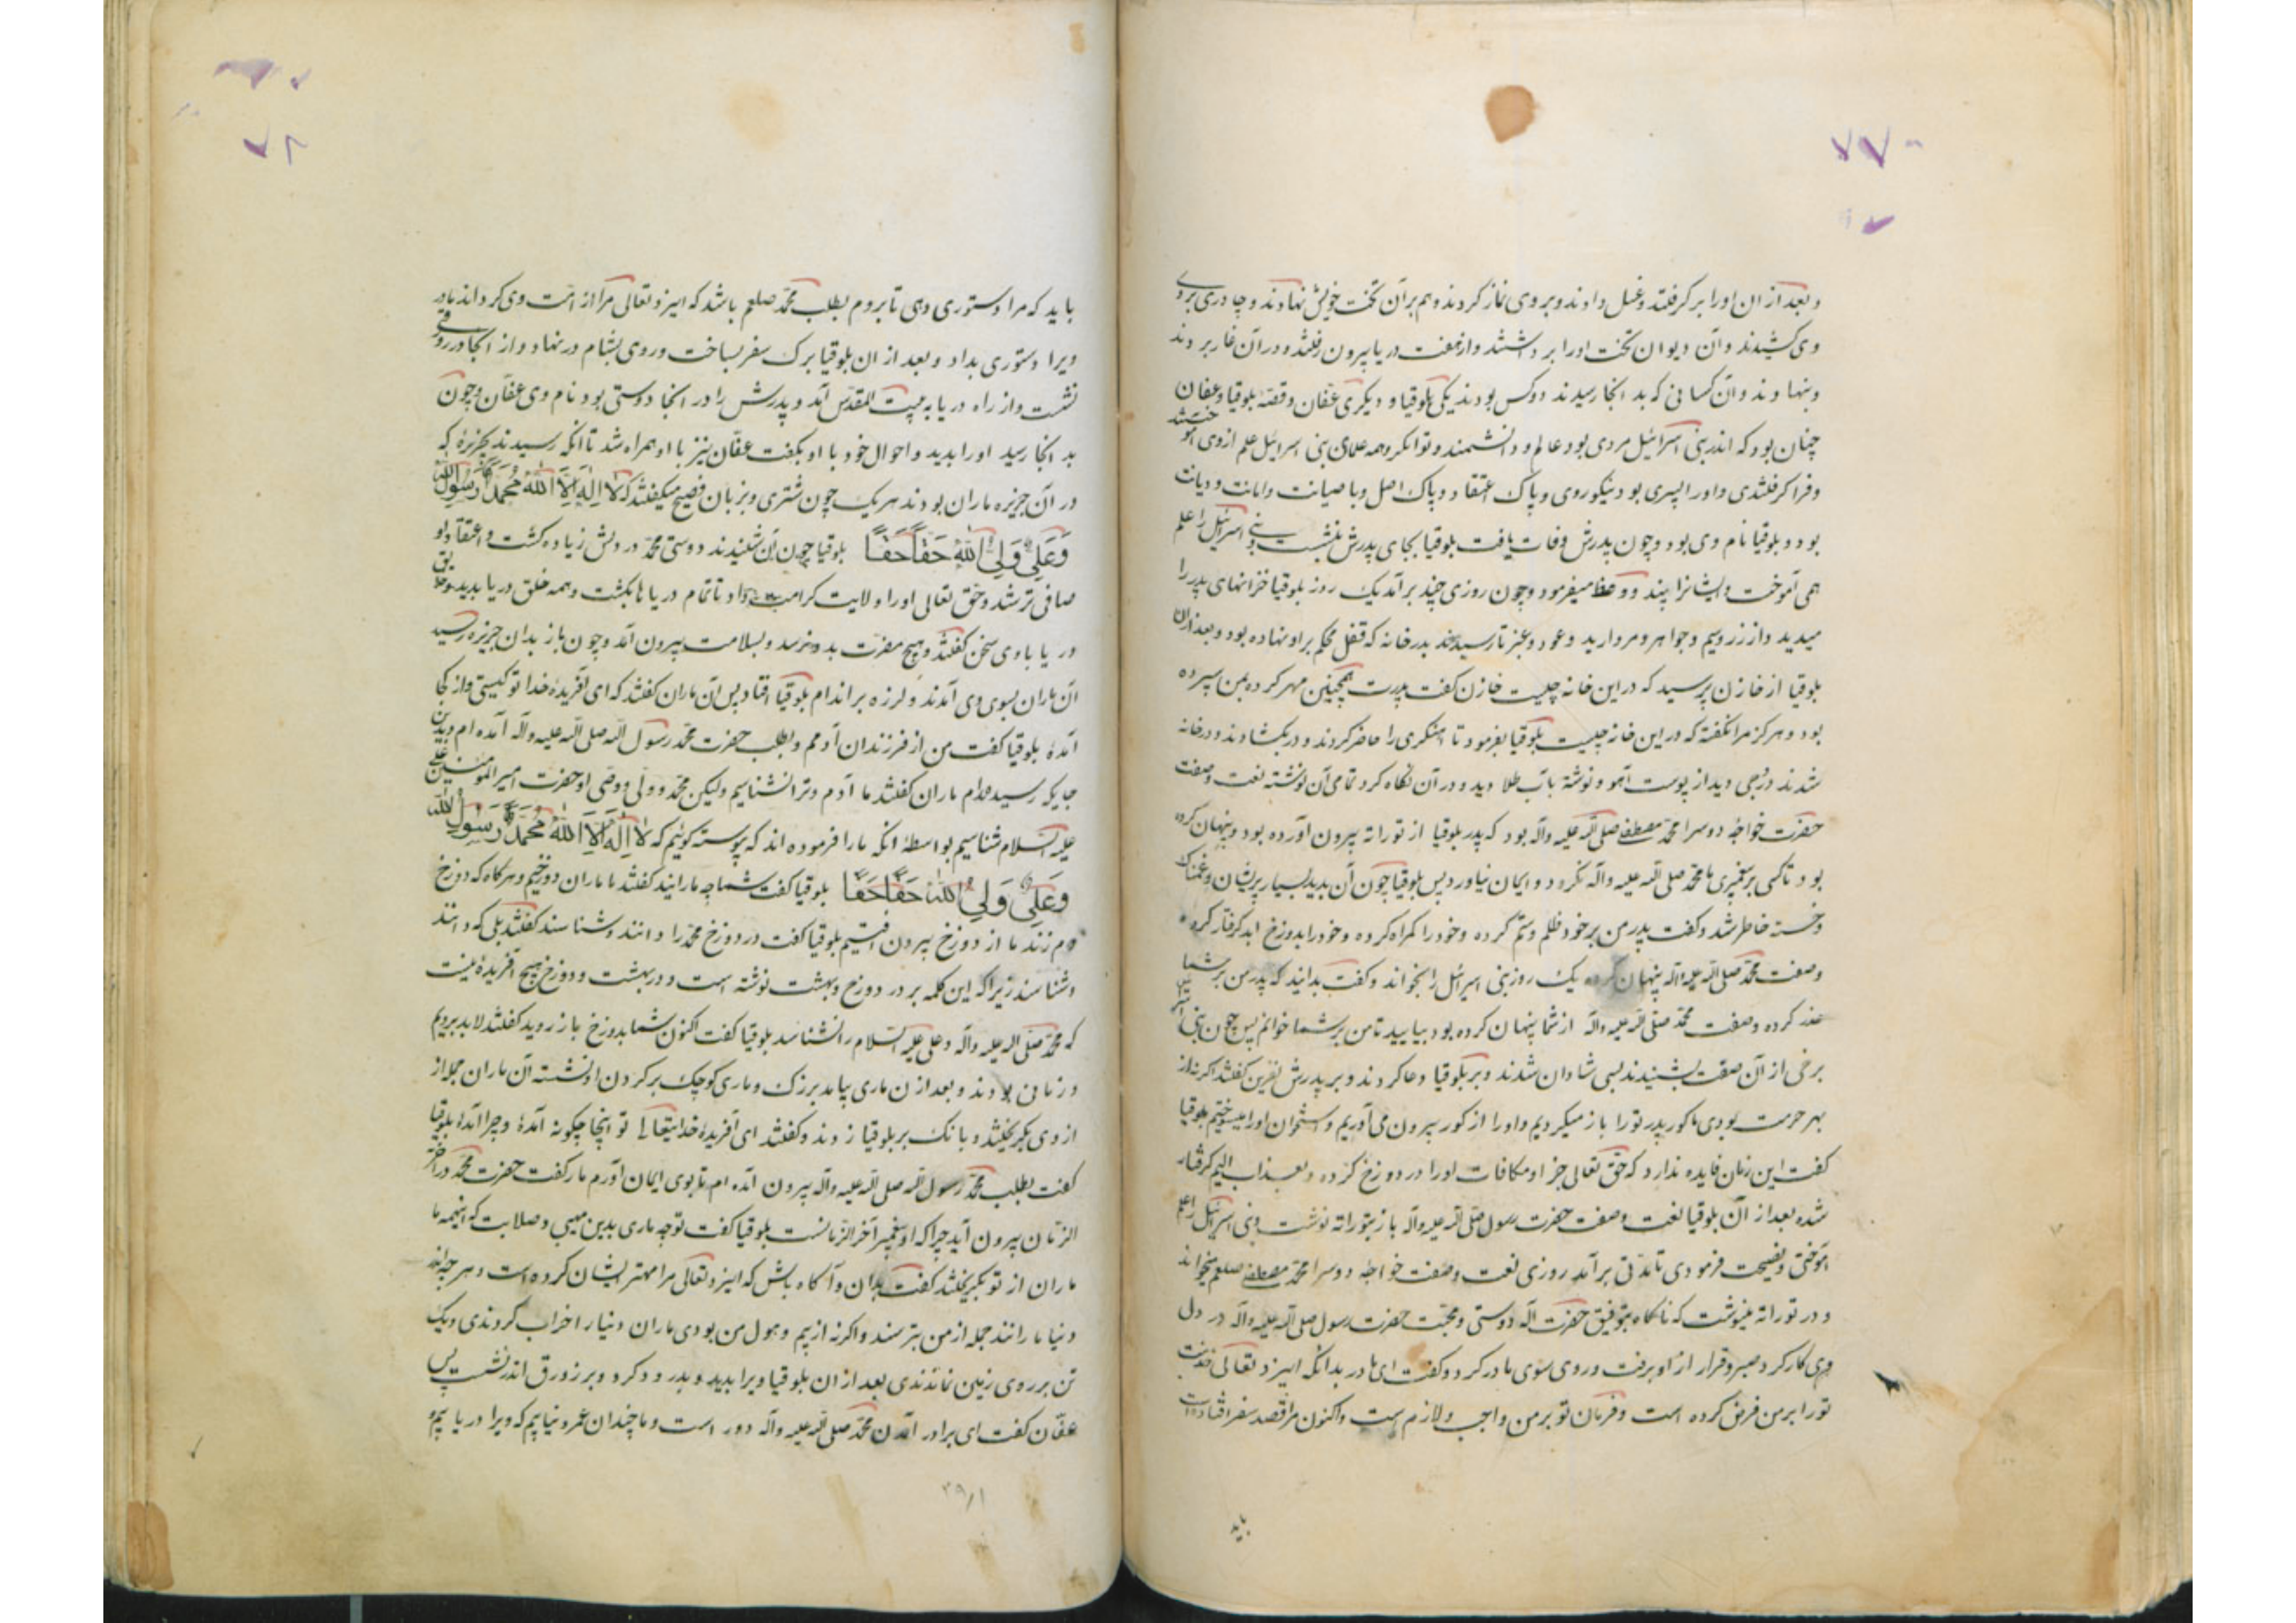 ۷۷
و بعد از ان اورا بر کرفتند و غسل دادند و بر وی نماز کردند و هم بر ان تخت خویش نهادند و چادری بر روی
وی کشیدند و آن دیوان تخت اورا برداشتند و از هفت دریا بیرون رفتند و در آن غار بردند
و بنهادند و آن کسانی که بد انجا رسیدند دو کس بودند یکی بلوقیا و دیکری عفان و قصهٔ بلوقیا و عفان
چنان بود که اندر بنی اسرائیل مردی بود عالم و دانشمند و توانکر و همه علمای بنی اسرائیل علم ازوی آموختند
و فرا کرفتندی و اورا پسری بود نیکوروی و پاک اعتقاد و پاک اصل و با صیانت و امانت و دیانت
بود و بلوقیا نام وی بود و چون پدرش وفات یافت بلوقیا بجای پدرش بنشست و بنی اسرائیل را علم
همی آموخت و ایشانرا پند و وعظ میفرمود و چون روزی چند بر آمد یک روز بلوقیا خزانهای پدر را
میدید و از زر و سیم و جواهر و مروارید و عود و عنبر تا رسیدند بدر خانه که قفل محکم بر او نهاده بود و بعد از ان
بلوقیا از خازن پرسید که در این خانه چیست خازن کفت پدرت همچنین مهر کرده بمن سپرده
بود و هرکز مرا نکفته که در این خانه چیست بلوقیا بفرمود تا اهنکری را حاضر کردند و در بکشادند و در خانه
شدند درجی دید از پوست آهو و نوشتهٔ باب طلا دید و در آن نکاه کرد تمامی آن نوشته نعت و صفت
حضرت خواجهٔ دوسرا محمد مصطفی صلی الله علیه وآله بود که پدر بلوقیا از توراته بیرون آورده بود و پنهان کرده
بود تا کسی بر پیغمبری ما محمد صلی الله علیه وآله نکرود و ایمان نیاورد پس بلوقیا چون آن بدید بسیار پریشان و غمناک
و خسته خاطر شد و کفت پدر من بر خود ظلم و ستم کرده و خود را کمراه کرده و خود را بدوزخ ابد کرفتار کرده
و صفت محمد صلی الله علیه وآله پنهان کرده یک روز بنی اسرائیل را بخواند و کفت بدانید که پدر من بر شما
عذر کرده و صفت محمد صلی الله علیه وآله از شما پنهان کرده بود بیایید تا من بر شما خوانم پس چون بنی اسرائیل
برخی از آن صفت بشنیدند بسی شادان شدند و بر بلوقیا دعا کردند و بر پدرش نفرین کفتند اکر نه از
بهر حرمت بودی ما کور پدر تورا باز میکردیم و اورا از کور بیرون می آوریم و استخوان اورا میسوختیم بلوقیا
کفت این زمان فایده ندارد که حق تعالی جزا و مکافات اورا در دوزخ کرده و بعذاب الیم کرفتار
شده بعد از آن بلوقیا نعت و صفت حضرت رسول صلی الله علیه وآله باز بتوراته نوشت و بنی اسرائیل را علم
آموختی و نصیحت فرمودی تا مدتی بر آمد روزی نعت و صفت خواجهٔ دوسرا محمد مصطفی صلعم میخواند
و در توراته مینوشت که ناکاه بتوفیق حضرت اله دوستی و محبت حضرت رسول صلی الله علیه وآله در دل
وی کار کرد و صبر و قرار از او برفت و روی سوی مادر کرد و کفت ای مادر بدانکه ایزد تعالی خدمت
تورا بر من فرض کرده است و فرمان تو بر من واجب و لازم است و اکنون مرا قصد سفر افتاده است
باید
۷۸
باید که مرا دستوری دهی تا بروم بطلب محمد صلعم باشد که ایزد تعالی مرا از امت وی کرداند مادر
ویرا دستوری بداد و بعد از ان بلوقیا برک سفر بساخت و روی بشام در نهاد و از انجا در زورقی
نشست و از راه دریا به بیت المقدس آمد و پدرش را در انجا دوستی بود نام وی عفان و چون
بد انجا رسید اورا بدید و احوال خود با او بکفت عفان نیز با او همراه شد تا انکه رسیدند بجزیرهٔ که
در آن جزیره ماران بودند هر یک چون شتری و بزبان فصیح میکفتند که لا اله الا الله محمد رسول الله
وَعَلِیٌّ وَلِیُّ اللهِ حَقّاً حَقّا بلوقیا چون آن شنیدند دوستی محمد در دلش زیاده کشت و اعتقاد او
صافی تر شد و حق تعالی اورا ولایت کرامت داد تا تمام دریاها بکشت و همه خلق دریا بدید و خلایق
دریا با وی سخن کفتند و هیچ مضرت بدو نرسد و بسلامت بیرون آمد و چون باز بدان جزیره رسید
آن ماران بسوی وی آمدند و لرزه بر اندام بلوقیا افتاد پس آن ماران کفتند که ای آفریدهٔ خدا تو کیستی و از کجا
آمدهٔ بلوقیا کفت من از فرزندان آدمم و بطلب حضرت محمد رسول الله صلی الله علیه وآله آمده ام و بدین
جایکه رسیده ام ماران کفتند ما آدم و ترا نشناسیم ولیکن محمد و ولی و وصی او حضرت امیر المؤمنین علی
علیه السلام شناسیم بواسطهٔ انکه مارا فرموده اند که پیوسته کوئیم که لا اله الا الله محمد رسول الله
وَعَلِیٌّ وَلِیُّ اللهِ حَقّاً حَقّا بلوقیا کفت شما چه مارانید کفتند ما ماران دوزخیم و هر کاه که دوزخ
دم زند ما از دوزخ بیرون افتیم بلوقیا کفت در دوزخ محمد را دانند و شناسند کفتند بلی که دانند
و شناسند زیرا که این کلمه بر در دوزخ و بهشت نوشته است و در بهشت و دوزخ هیچ آفریدهٔ نیست
که محمد صلی الله علیه وآله و علی علیه السلام را نشناسد بلوقیا کفت اکنون شما بدوزخ باز روید کفتند لابد برویم
و زمانی بودند و بعد از ن ماری بیامد بزرک و ماری کوچک بر کردن او نشسته آن ماران جمله از
از وی بکریختند و بانک بر بلوقیا زدند و کفتند ای آفریدهٔ خدایتعالی تو اینجا چکونه آمدهٔ و چرا آمدهٔ بلوقیا
کفت بطلب محمد رسول الله صلی الله علیه وآله بیرون آمده ام تا بوی ایمان آورم مار کفت حضرت محمد در آخر
الزمان بیرون آید چرا که او پیغمبر آخر الزمانست بلوقیا کفت تو چه ماری بدین مهیبی و صلابت که اینهمه ما
ماران از تو بکریختند کفت بدان و آکاه باش که ایزد تعالی مرا مهتر ایشان کرده است و هر چه اند
دنیا مارانند جمله از من بترسند و اکر نه از بیم و هول من بودی ماران دنیا را خراب کردندی و یک
تن بر روی زمین نماندندی بعد از ان بلوقیا ویرا بدید و بدرود کرد و بر زورق اندر نشست پس
عفان کفت ای برادر آمدن محمد صلی الله علیه وآله دور است و ما چندان عمر و نیابیم که ویرا دریابیم و
۳۹/۱